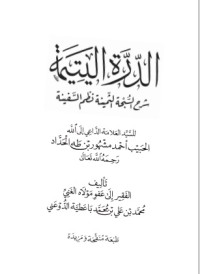 الدرة اليتيمة
شرح السبحة الثمينة نظم السفينة
للسيد العلامة الداعي إلى الله
الحبيب أحمد مشهور بن طه الحداد
رحمه الله تعالى
تأليف
الفقير إلى عفو مولاه الغني
محمد بن علي بن محمد باعطية الدوعني
طبعة منقحة ومزيدة